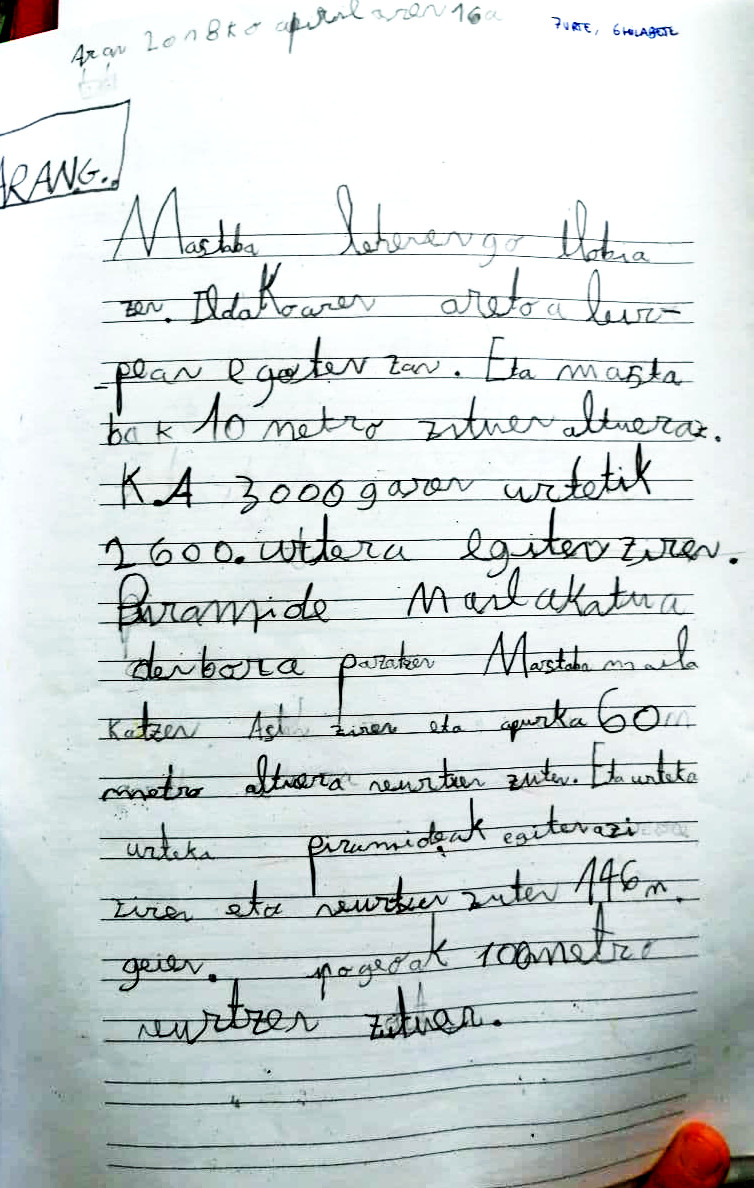 Aran 2018ko apirilaren 16a
7URTE, 6HILABETE
ARANG..
Mastaba lehenengo tlobia
zen. Ildakoaren aretoa lur-
-pean egoten zan. Eta masta
bak 10 metro zituen altueraz.
K.A 3000garen urtetik
2600.urtera egiten ziren.
Piramide Mailakatua
denbora pazatzen Mastaba maila
katzen Asi ziren eta apurka 60
metro altuera neurtzen zuten. Eta urteka
urteka piramideak egiten azi
ziren eta neurtzen zuten 146 m.
geien. pogeoak 100metro
neurtzen zituen.